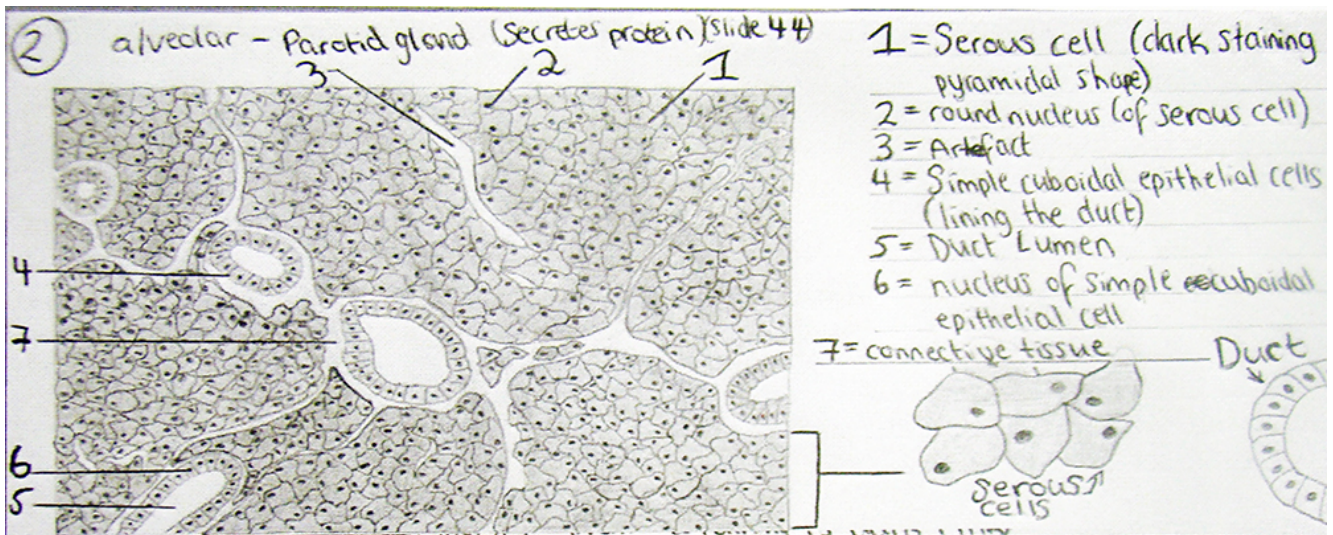 2 alveolar - Parotid gland (secretes protein)(slide 44)
3 2 1
4
7
6
5
1 = Serous cell (dark staining
pyramidal shape)
2 = round nucleus (of serous cell)
3 = Artefact
4 = Simple cuboidal epithelial cells
(lining the duct)
5 = Duct Lumen
6 = nucleus of simple cuboidal
epithelial cell
7 = connective tissue
Duct
serous
cells